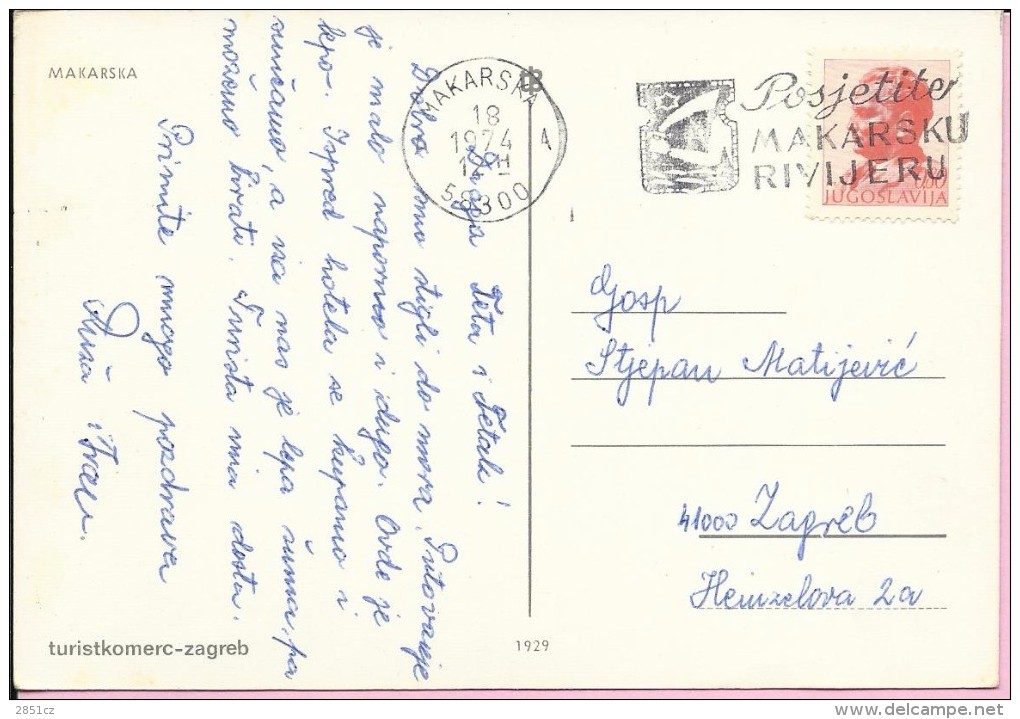 MAKARSKA
Draga Teta i Tetak!
Dobro smo stigli do mora. Putovanje
je malo naporno i dugo. Ovde je
lepo. Ispred hotela se kupamo i
sunčamo, a iza nas je lepa šuma, pa
možemo birati. Turista ima dosta.
Primite mnogo pozdrava
Ruža i
turistkomerc-zagreb
1929
MAKARSKA
18
1974
12H
A
58300
Posjetite
MAKARSKU
RIVIJERU
0,50
JUGOSLAVIJA
Gosp
Stjepan Matijević
41000 Zagreb
Heinzelova 2a
2851cz
delcampe.net